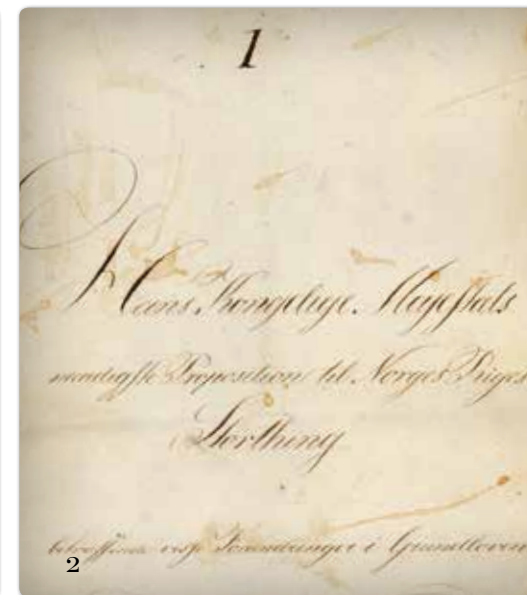 1
Hans Kongelige Majestæts
naadigste Proposition til Norges Riges
Storthing
betreffende visse Forandringer i Grundloven
2